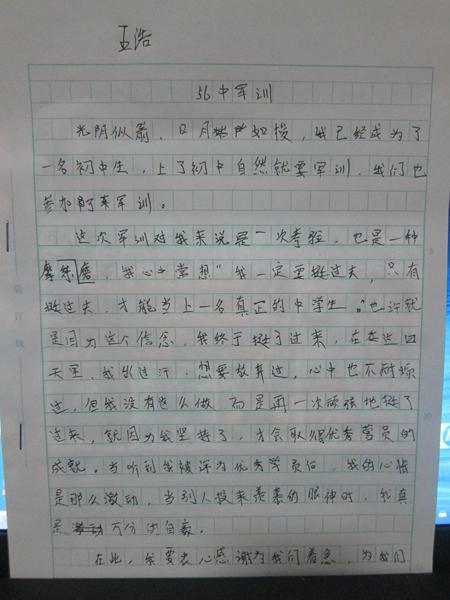 王浩
56中军训
光阴似箭，日月如梭，我已经成为了
一名初中生，上了初中自然就要军训，我们也
参加了军训。
这次军训对我来说是一次考验，也是一种
磨，我心中常想"我一定要挺过去，只有
挺过去，才能当上一名真正的中学生。"也许就
是因为这个信念，我终于挺了过来，在这四
天里，我出过汗，想要放弃过，心中也不耐烦
过，但我没有这么做，而是再一次顽强地挺了
过来，就因为我坚持了，才会取得优秀营员的
成就。当听到我被评为优秀学员后，我的心情
是那么激动，当别人投来羡慕的眼神时，我真
是万分的自豪。
在此，我要衷心感谢为我们着急，为我们
装订线